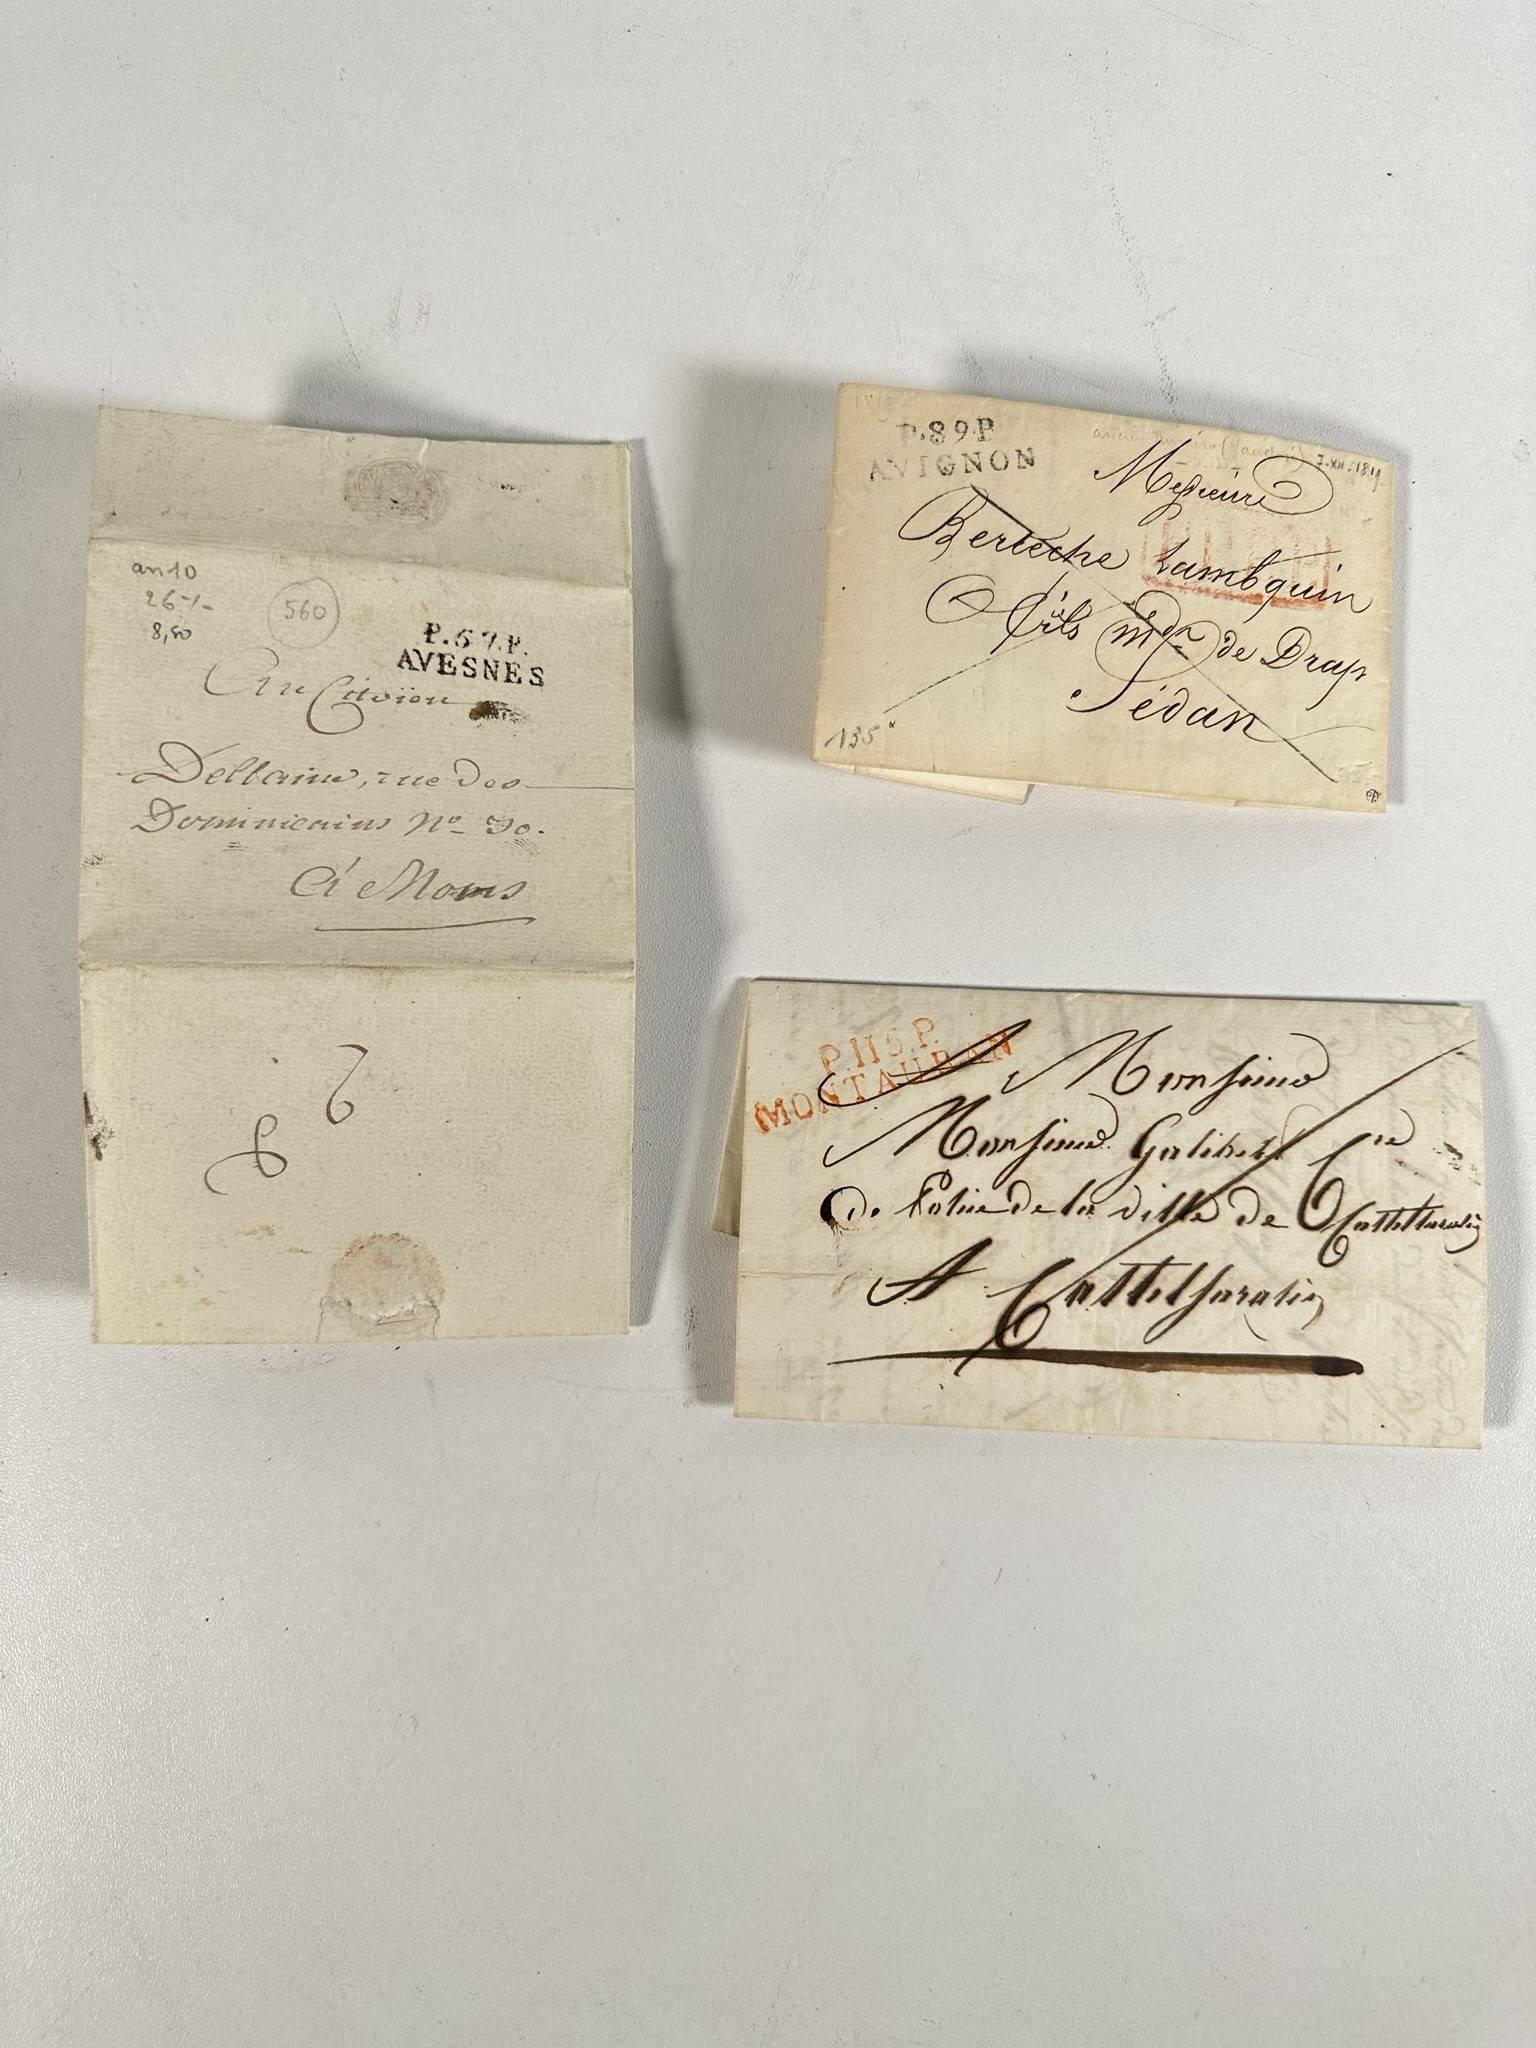 an 10
26-/-
8,50
560
P.57.P.
AVESNES
Au Citoïen
Delbaine, rue des
Dominicains No 30.
à Mons
2
9
P.89.P.
AVIGNON
7-XII-1819
Messieurs
Berteche Lambquin
& fils md de Drap
Sédan
135
P.115.P.
MONTAUBAN
Monsieur
Monsieur Galibert Cre
De Police de la ville de Castelsarasin
A Castelsarasin